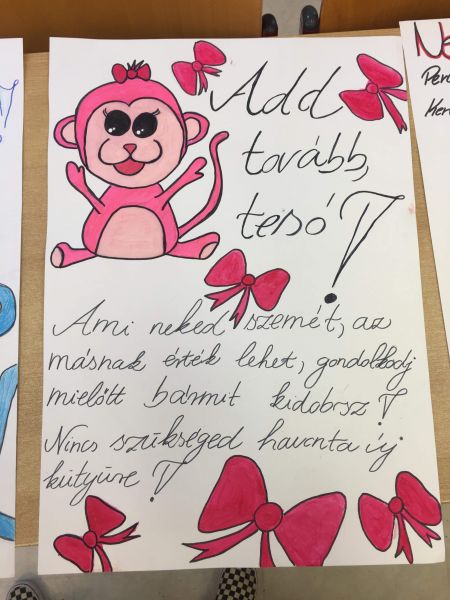 Add
tovább,
tesó!
Ami neked szemét, az
másnak érték lehet, gondolkodj
mielőtt bármit kidobsz!
Nincs szükséged havonta új
kütyüre!